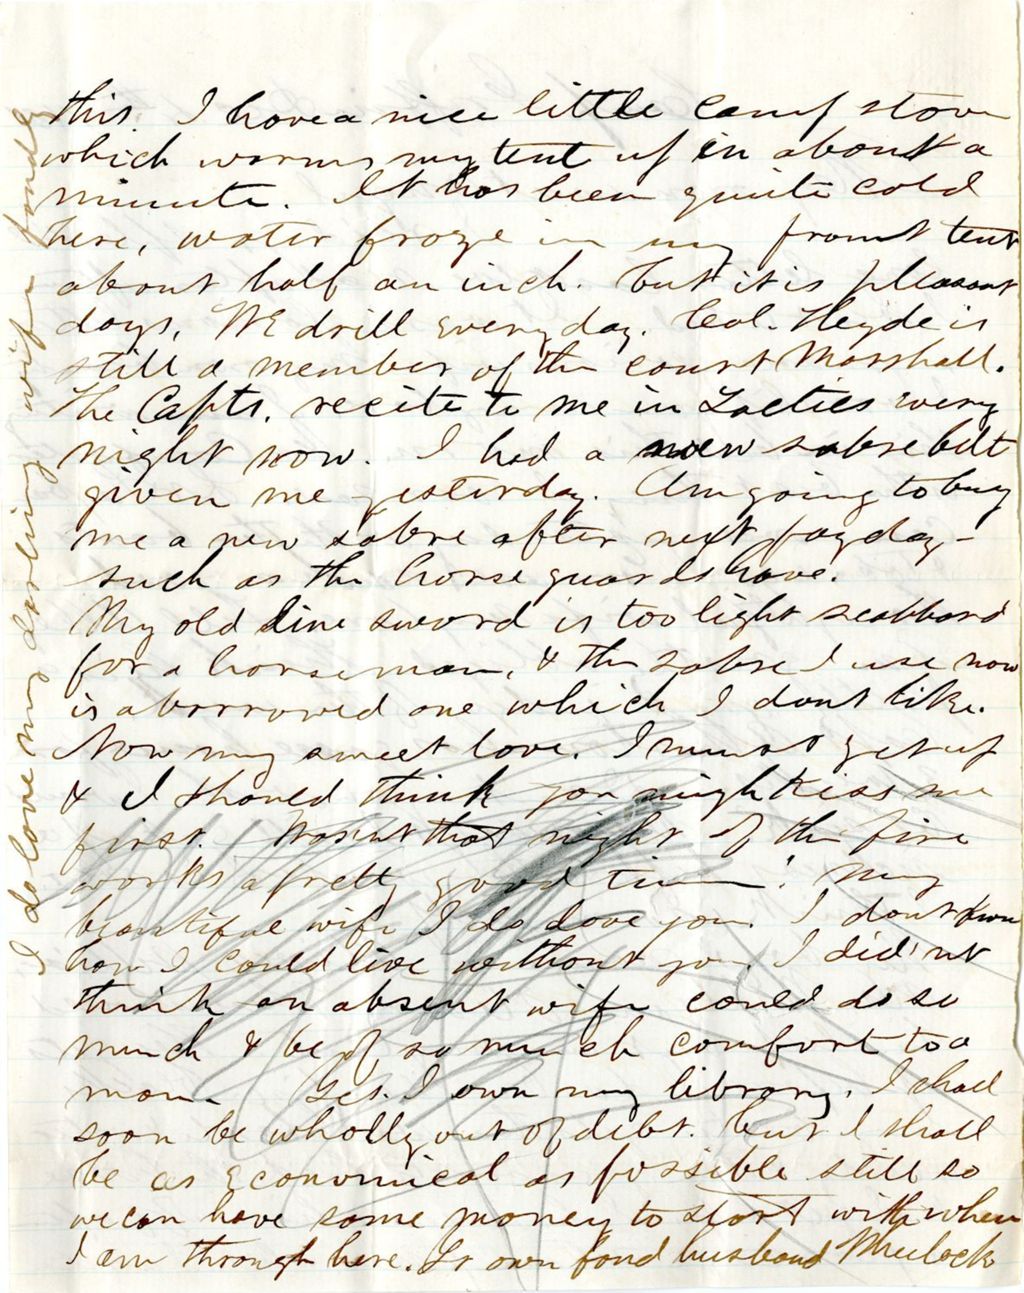 this. I have a nice little camp stove
which warms my tent up in about a
minute. It has been quite cold
here, water froze in my front tent
about half an inch. but it is pleasant
days, We drill every day. Col. Heyde is
still a member of the court Marshall.
The Capts. recite to me in Tactics every
night now. I had a new sabre belt
given me yesterday. Am going to buy
me a new sabre after next payday-
such as the horse guards have.
My old line sword is too light scabbard
for a horseman, & the sabre I use now
is a borrowed one which I dont like.
Now my sweet love. I must get up
& I should think you might kiss me
first. Wasnt that night of the fire
works a pretty good time! My
beautiful wife I do love you. I dont know
how I could live without you. I did'nt
think an absent wife could do so
much & be of so much comfort to a
man. Yes. I own my library. I shall
soon be wholly out of debt. but I shall
be as economical as possible still so
we can have some money to start with when
I am through here. Yr own fond husband
I do love my darling wife fondly